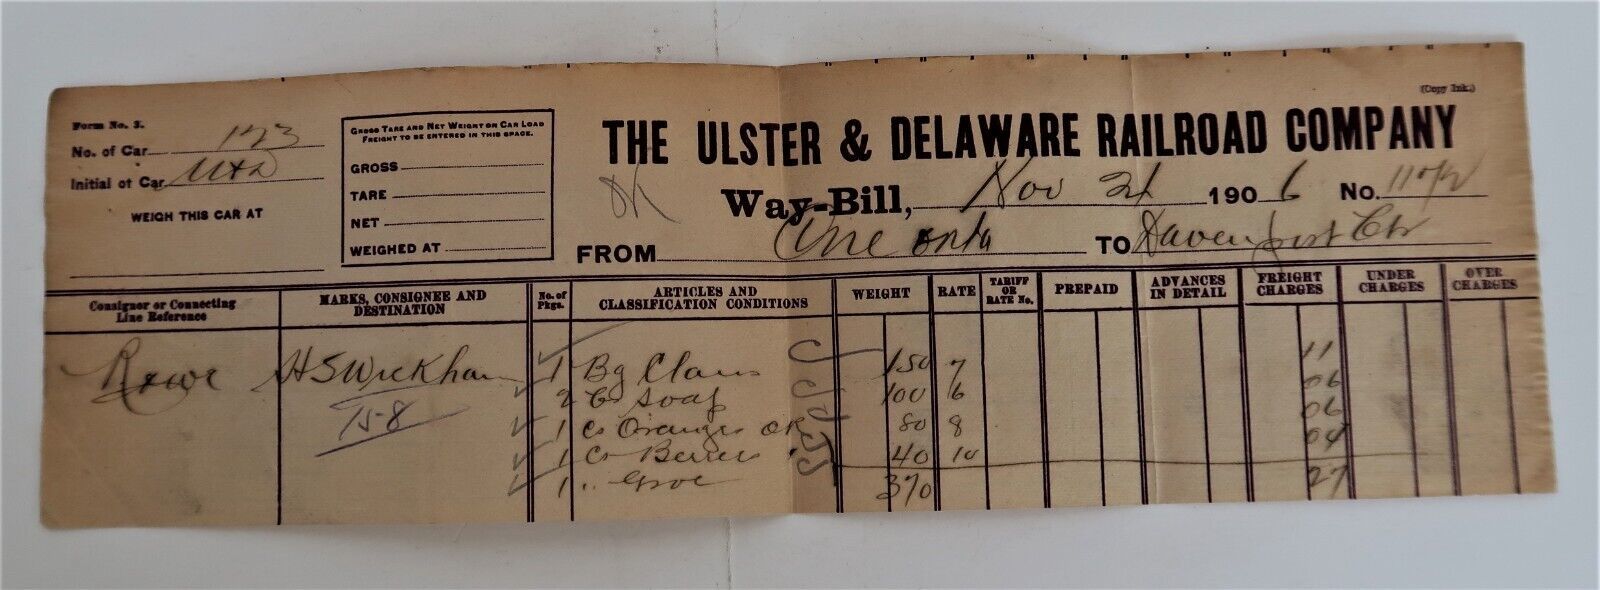 (Copy Ink.)
Form No. 3.
No. of Car 123
Initial of Car U&D
WEIGH THIS CAR AT
GROSS TARE AND NET WEIGHT ON CAR LOAD
FREIGHT TO BE ENTERED IN THIS SPACE.
GROSS
TARE
NET
WEIGHED AT
THE ULSTER & DELAWARE RAILROAD COMPANY
OK
Way-Bill, Nov 24 1906 No.
FROM Oneonta TO Davenport Ctr
Consignor or Connecting Line Reference
MARKS, CONSIGNEE AND DESTINATION
No. of Pkgs.
ARTICLES AND CLASSIFICATION CONDITIONS
WEIGHT
RATE
TARIFF OR RATE No.
PREPAID
ADVANCES IN DETAIL
FREIGHT CHARGES
UNDER CHARGES
OVER CHARGES
Rowe HS Wickham 1 Bg Clams 150 7 11
2 Cs Soap 100 6 06
75-8 1 Cs Oranges OR 80 8 06
1 Cs 40 10 04
1 " Groc 370 27